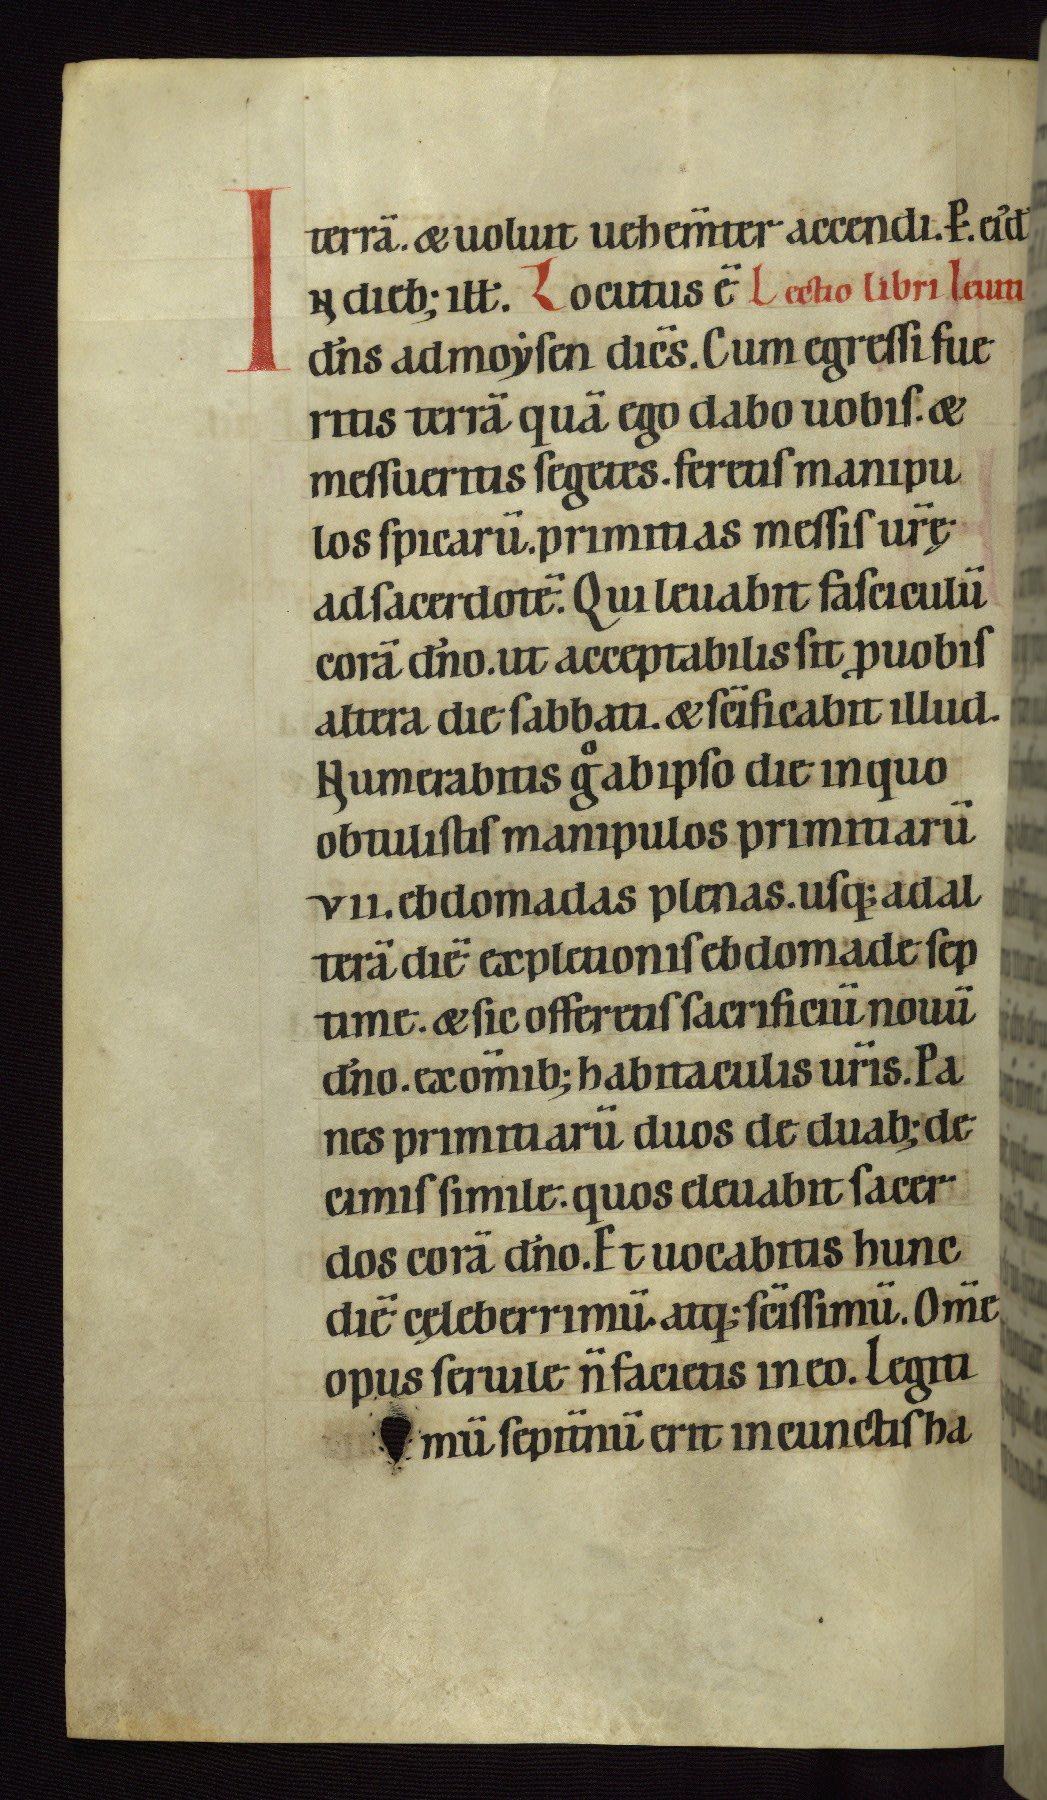 terrã. & uolunt uehem̃ter accendi. P. eiđ
IN dieb; iłł. Locutus ẽ Lectio libri leuiti
dñs ad moẏsen dicẽs. Cum egressi fue
ritis terrã quã ego dabo uobis. &
messueritis segetes. feretis manipu
los spicarũ. primitias messis ur̃ę
ad sacerdotẽ. Qui leuabit fasciculũ
corã dño. ut acceptabilis sit ꝓ uobis
altera die sabbati. & sc̃ificabit illud.
Numerabitis gͦ ab ipso die in quo
obtulistis manipulos primitiarũ
VII. ebdomadas plenas. usq; ad al
terã diẽ expletionis ebdomade sep
time. & sic offeretis sacrificiũ nouũ
dño. ex om̃ib; habitaculis ur̃is. Pa
nes primitiarũ duos de duab; de
cimis simile. quos eleuabit sacer
dos corã dño. Et uocabitis hunc
diẽ cęleberrimũ. atq; sc̃issimũ. Om̃e
opus seruile ñ facietis in eo. Legiti
mũ sempit̃nũ erit in cunctis ha